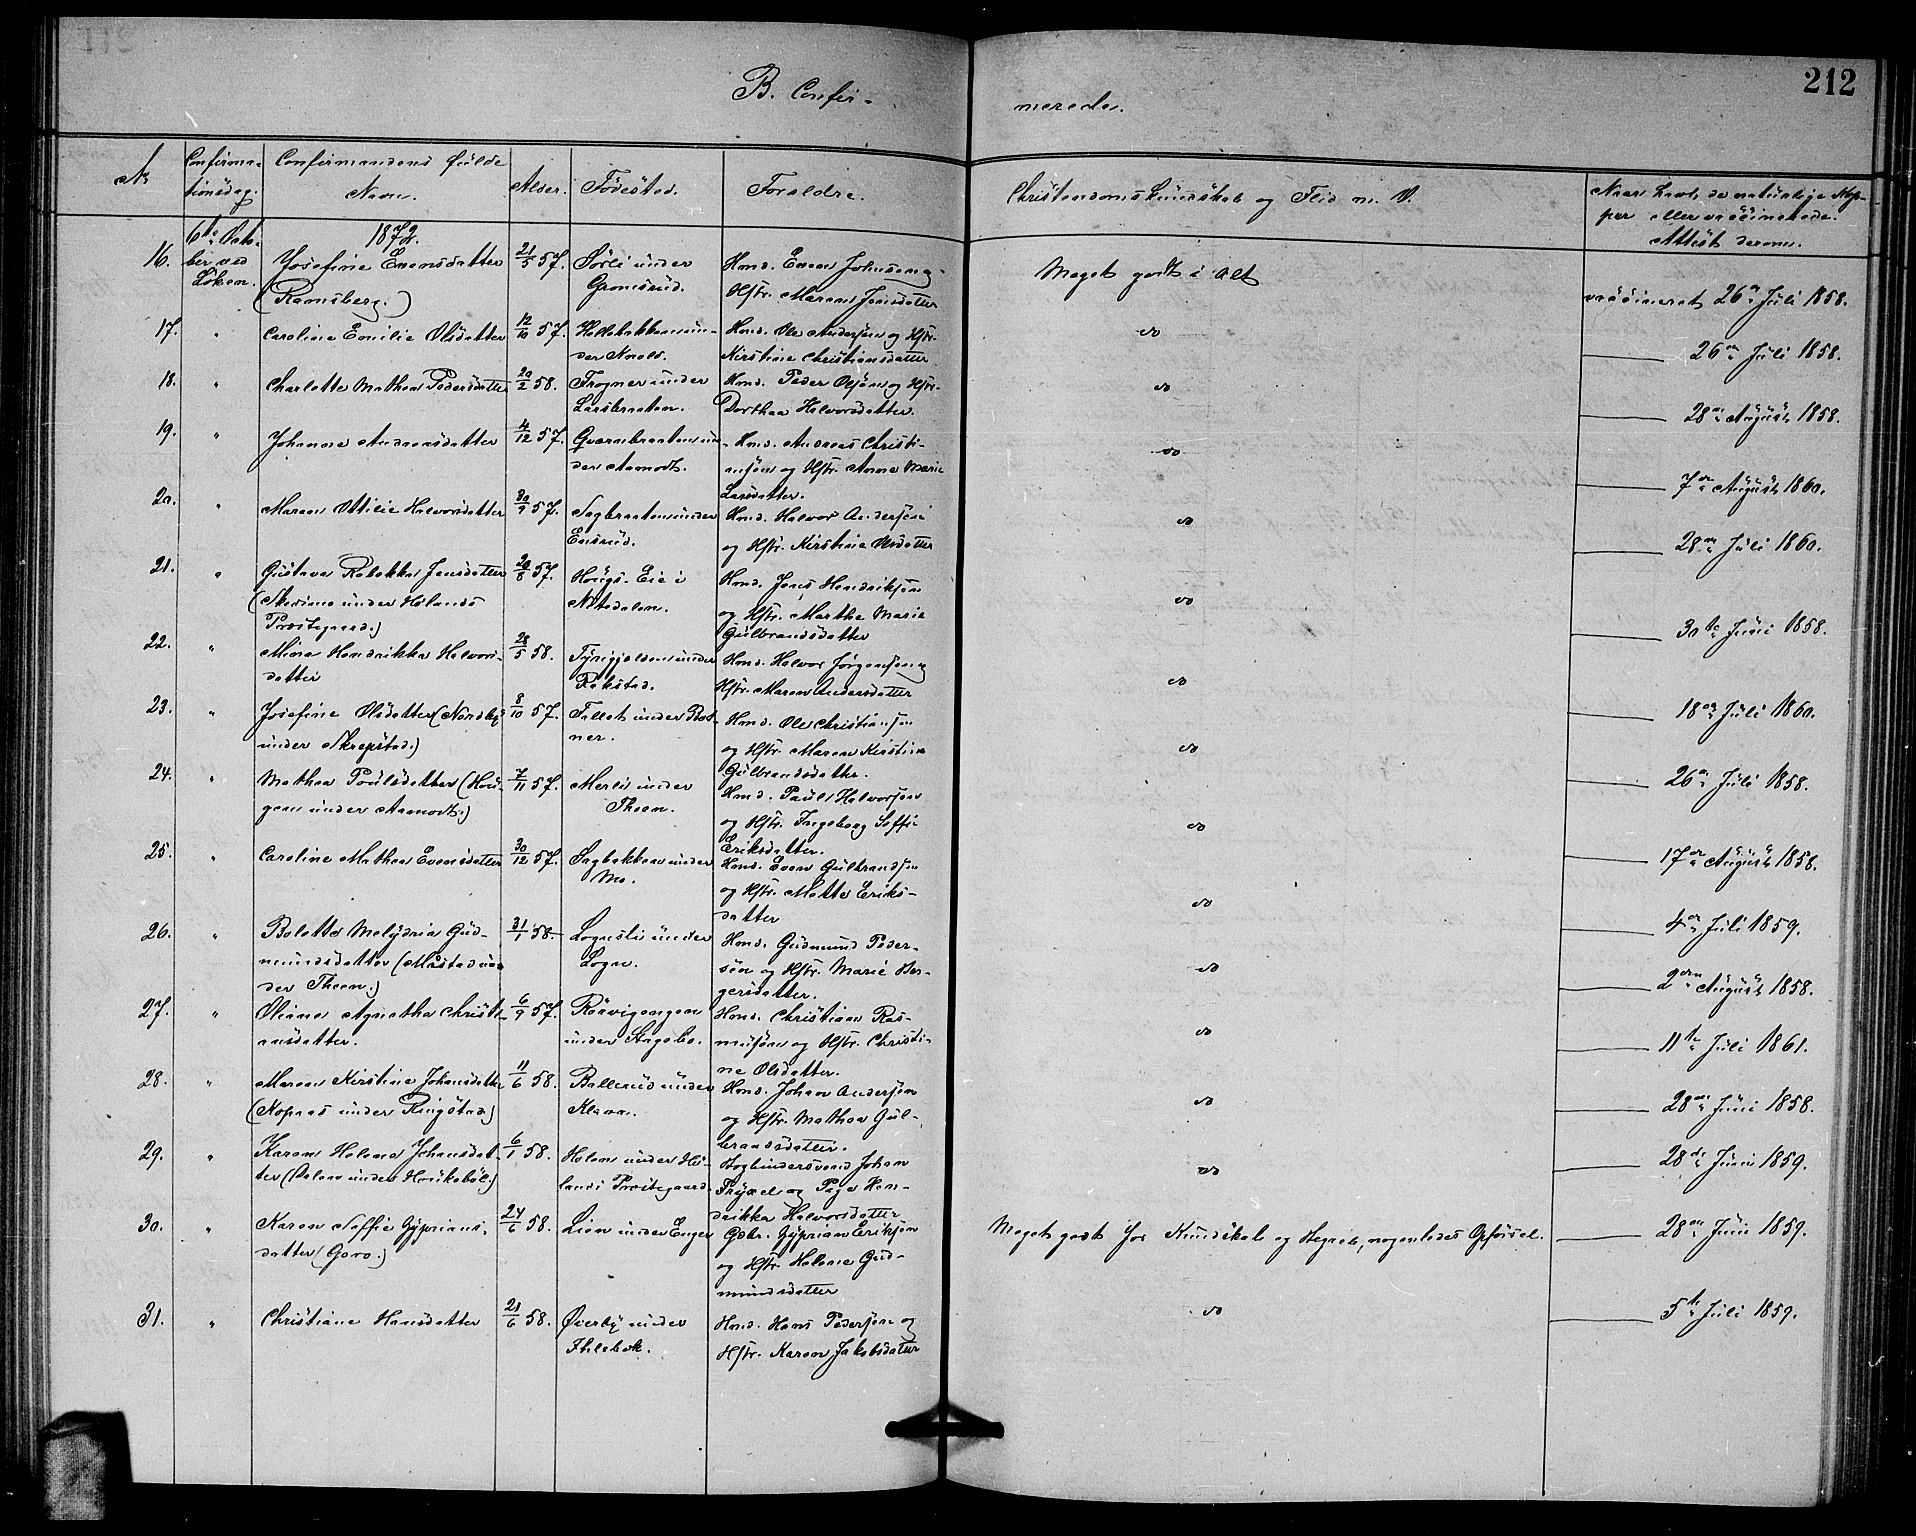 212
B. Confir-
merede.
No
Confirma-
tionsdag.
Confirmandens fulde
Navn.
Alder.
Födested.
Forældre.
Christendomskundskab og Flid m. V.
Naar havt de naturlige Kop-
per eller vaccinerede.
Attest derom.
6te Octo-
ber ved
Löken.
1872.
16.
Josefine Evensdatter
(Ramsberg.)
21/5 57.
Sörli under
Gromsrud.
Hmd. Even Johnsen og
Hstr. Maren Jensdatter
Meget godt i alt
vaccineret 26de Juli 1858.
17. "
Caroline Emilie Olsdatter
12/10 57.
Holtebakken un-
der Knold.
Hmd. Ole Andersen og Hstr.
Kirstine Christiansdatter
do
26de Juli 1858.
18. "
Charlotte Mathea Pedersdatter
20/2 58.
Frogner under
Larsbraaten.
Hmd. Peder Olsön og Hstr.
Dorthea Halvorsdatter.
do
28de August 1858.
19. "
Johanne Andreasdatter
4/12 57.
Qværnbraaten un-
der Aamodt.
Hmd. Andreas Christi-
ansön og Hstr. Anne Marie
Larsdatter.
do
7de August 1860.
20. "
Maren Ottilie Halvorsdatter
30/9 57.
Sagbraaten under
Ensrud.
Hmd. Halvor Andersen
og Hstr. Kirstine Olsdatter
do
28de Juli 1860.
21. "
Gustava Rebekka Jensdatter
(Skerime under Hölands
Præstegaard.)
20/8 57.
Hougs-Eie i
Nitedalen.
Hmd. Jens Hendriksen
og Hstr. Marthe Marie
Gulbrandsdatter
do
30te Juni 1858.
22. "
Mina Hendrikka Halvors-
datter
28/5 58.
Tyrigjelden under
Rakstad.
Hmd. Halvor Jörgensen og
Hstr. Maren Andersdatter
do
18de Juli 1860.
23. "
Josefine Olsdatter (Nordby
under Skrepstad.)
8/10 57.
Fallet under Bot-
ner.
Hmd. Ole Christiansen
og Hstr. Maren Kirstine
Gulbrandsdatter.
do
26de Juli 1858.
24. "
Mathea Poulsdatter (Hou-
gen under Aamodt.)
7/11 57.
Merli under
Theen.
Hmd. Paul Halvorsen
og Hstr. Ingeborg Soffie
Eriksdatter.
do
17de August 1858.
25. "
Caroline Mathea Evensdatter
30/12 57.
Sagbakken under
Mo.
Hmd. Even Gulbrandsen
og Hstr. Mette Eriks-
datter
do
4de Juli 1859.
26. "
Bolette Melydria Gud-
mundsdatter (Mustad un-
der Theen.)
31/1 58.
Lognsli under
Logn.
Hmd. Gudmund Peder-
sen og Hstr. Marie Ber-
gersdatter.
do
2den August 1858.
27. "
Oliane Agnethe Christi-
ansdatter.
6/9 57.
Rörvigengen
under Sagebo.
Hmd. Christian Ras-
musön og Hstr. Christi-
ne Olsdatter.
do
11te Juli 1861.
28. "
Maren Kirstine Johansdatter
(Kopaas under Ringstad)
11/6 58.
Ballerud under
Kleva.
Hmd. Johan Andersen
og Hstr. Mathea Gul-
brandsdatter.
do
28de Juni 1858.
29. "
Karen Helene Johansdat-
ter (Dalen under Houkeböl.)
6/1 58.
Holen under Hö-
lands Præstegaard.
Bogbindersvend Johan
Fryxel og Pige Hen-
drikka Halvorsdatter
do
28de Juni 1859.
30. "
Karen Soffie Gyprians-
datter (Gora.)
24/6 58.
Lien under Enger
Gbr. Gyprian Eriksen
og Hstr. Helene Gud-
mundsdatter
Meget godt for Kundskab og Begreb, nogenledes Opförsel.
28de Juni 1859.
31. "
Christiane Hansdatter
21/6 58.
Overby under
Ihlebæk.
Hmd. Hans Pedersen og
Hstr. Karen Jakobsdatter
do
5te Juli 1859.